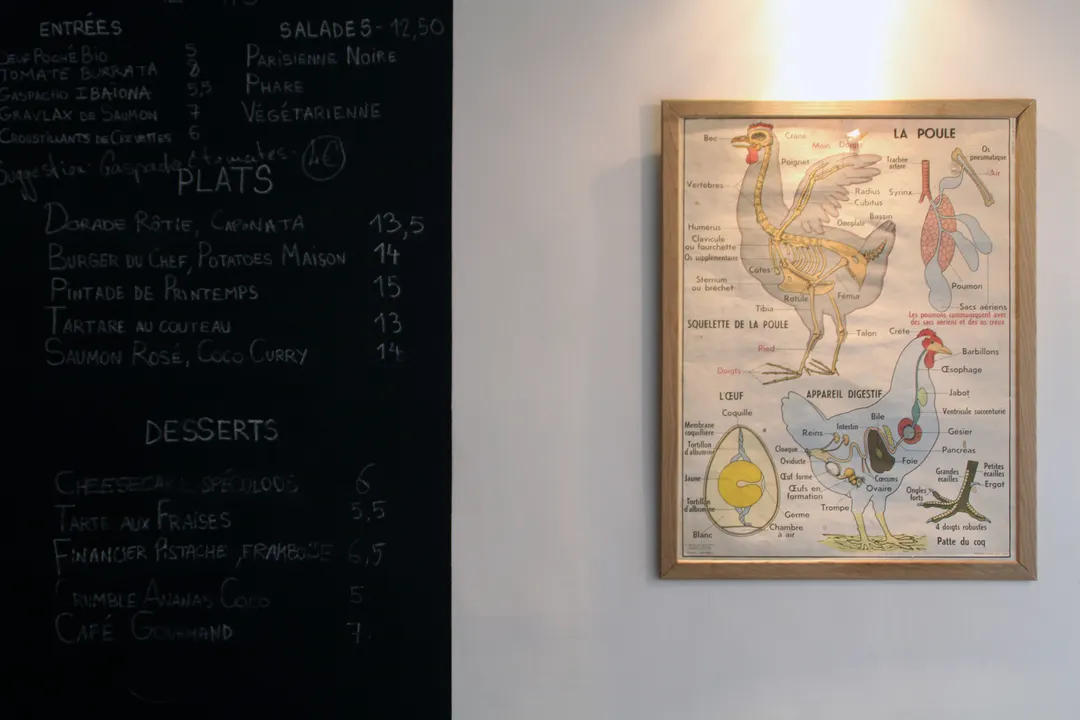 ENTRÉES
OEUF POCHÉ BIO 5
TOMATE BURRATA 8
GASPACHO IBAÏONA 5,5
GRAVLAX DE SAUMON 7
CROUSTILLANTS DE CREVETTES 6
Suggestion Gaspacho tomates 4€
SALADES - 12,50
PARISIENNE NOIRE
PHARE
VÉGÉTARIENNE
PLATS
DORADE RÔTIE, CAPONATA 13,5
BURGER DU CHEF, POTATOES MAISON 14
PINTADE DE PRINTEMPS 15
TARTARE AU COUTEAU 13
SAUMON ROSE, COCO CURRY 14
DESSERTS
CHEESECAKE SPÉCULOOS 6
TARTE AUX FRAISES 5,5
FINANCIER PISTACHE, FRAMBOISE 6,5
CRUMBLE ANANAS COCO 5
CAFÉ GOURMAND 7
LA POULE
Bec
Crâne
Main
Doigts
Poignet
Vertèbres
Radius
Cubitus
Omoplate
Bassin
Humérus
Clavicule
ou fourchette
Os supplémentaires
Côtes
Sternum
ou bréchet
Rotule
Fémur
Tibia
SQUELETTE DE LA POULE
Talon
Pied
Doigts
Trachée
artère
Os
pneumatique
Air
Syrinx
Poumon
Sacs aériens
Les poumons communiquent avec
des sacs aériens et des os creux
L'ŒUF
Coquille
Membrane
coquillière
Tortillon
d'albumine
Jaune
Tortillon
d'albumine
Blanc
Germe
Chambre
à air
APPAREIL DIGESTIF
Crête
Barbillons
Œsophage
Jabot
Ventricule succenturié
Gésier
Pancréas
Bile
Intestin
Reins
Cloaque
Oviducte
Foie
Œuf formé
Cæcums
Œufs en
formation
Ovaire
Trompe
Grandes
écailles
Petites
écailles
Ergot
Ongles
forts
4 doigts robustes
Patte du coq